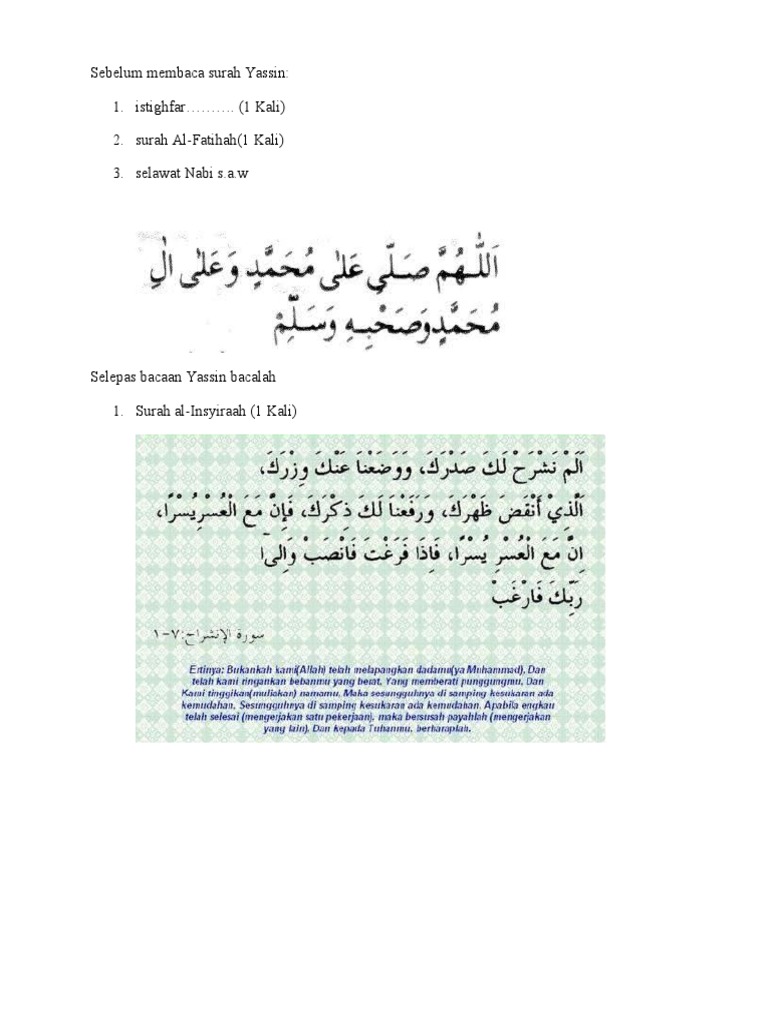 Sebelum membaca surah Yassin:
1. istighfar………. (1 Kali)
2. surah Al-Fatihah(1 Kali)
3. selawat Nabi s.a.w
اَللّٰهُمَّ صَلِّي عَلٰى مُحَمَّدٍ وَعَلٰى اٰلِ
مُحَمَّدٍ وَصَحْبِهِ وَسَلِّمْ
Selepas bacaan Yassin bacalah
1. Surah al-Insyiraah (1 Kali)
اَلَمْ نَشْرَحْ لَكَ صَدْرَكَ، وَوَضَعْنَا عَنْكَ وِزْرَكَ،
اَلَّذِيْ أَنْقَضَ ظَهْرَكَ، وَرَفَعْنَا لَكَ ذِكْرَكَ، فَإِنَّ مَعَ الْعُسْرِ يُسْرًا،
اِنَّ مَعَ الْعُسْرِ يُسْرًا، فَاِذَا فَرَغْتَ فَانْصَبْ وَاِلٰىٓ
رَبِّكَ فَارْغَبْ
سورة الإنشراح:٧-١
Ertinya: Bukankah kami(Allah) telah melapangkan dadamu(ya Muhammad), Dan
telah kami ringankan bebanmu yang berat, Yang memberati punggungmu, Dan
Kami tinggikan(muliakan) namamu, Maka sesungguhnya di samping kesukaran ada
kemudahan, Sesungguhnya di samping kesukaran ada kemudahan. Apabila engkau
telah selesai (mengerjakan satu pekerjaan), maka bersusah payahlah (mengerjakan
yang lain), Dan kepada Tuhanmu, berharaplah.